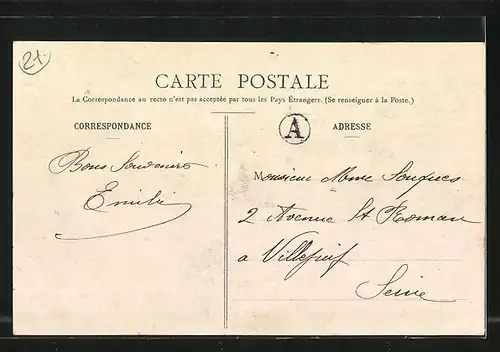 21
CARTE POSTALE
La Correspondance au recto n'est pas acceptée par tous les Pays Étrangers. (Se renseigner à la Poste.)
CORRESPONDANCE
A
ADRESSE
Bons Souvenirs
Emilie
Monsieur Mme Souques
2 Avenue St Roman
a Villejuif
Seine